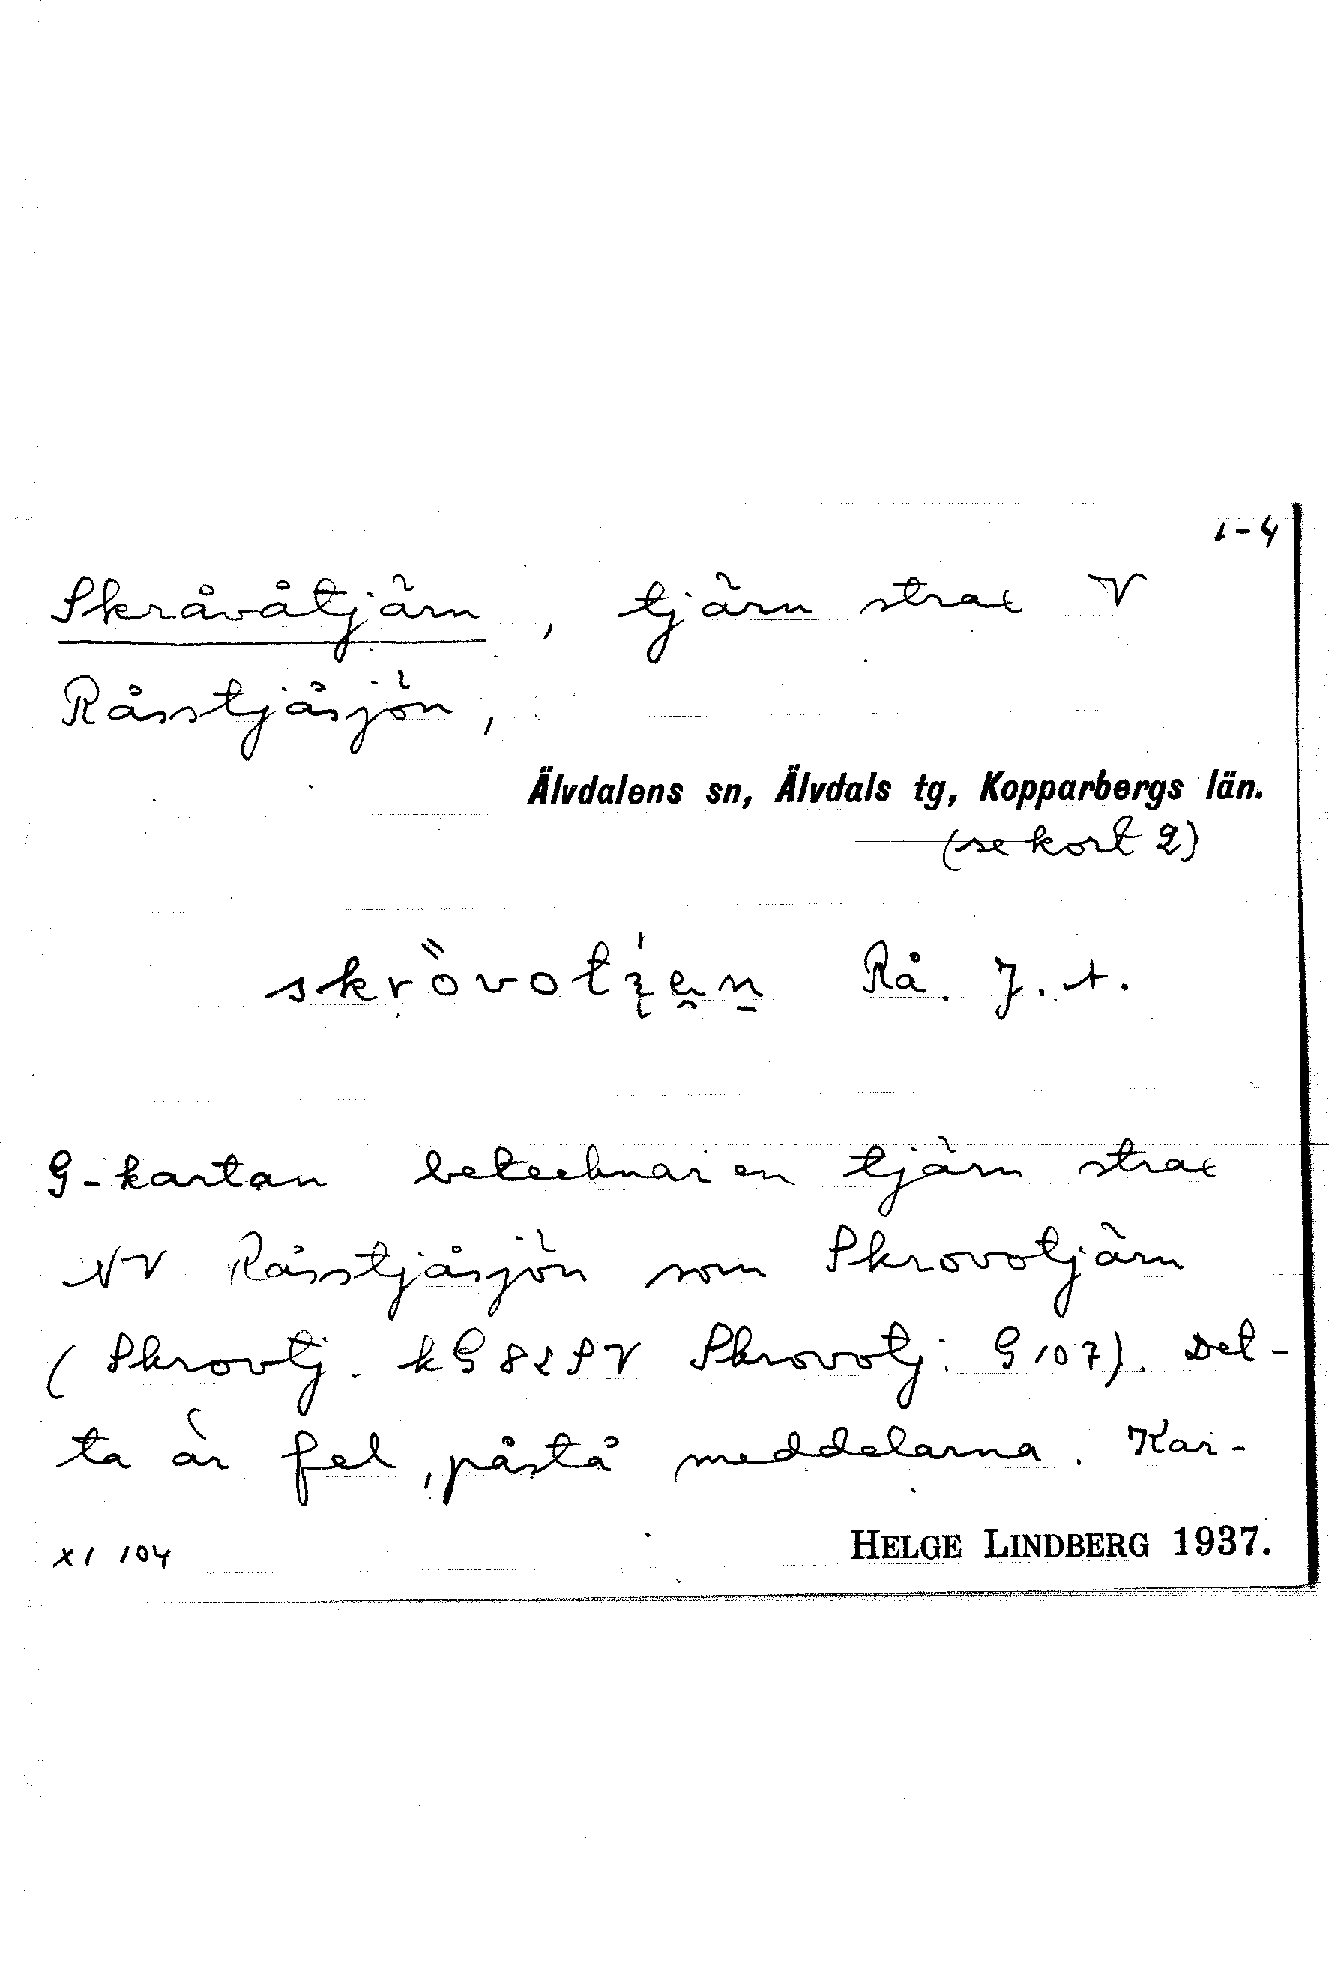 1-4
Skråvåtjärn, tjärn strax V
Råsstjåsjön,
Älvdalens sn, Älvdals tg, Kopparbergs län.
(se kort 2)
Rå. J. A.
G-kartan betecknar en tjärn strax
NV Råsstjåsjön som Skrovotjärn
(Skrovtj. kG 82 SV Skrovotj. G 107). Det-
ta är fel, påstå meddelarna. Kar-
XI 104
HELGE LINDBERG 1937.